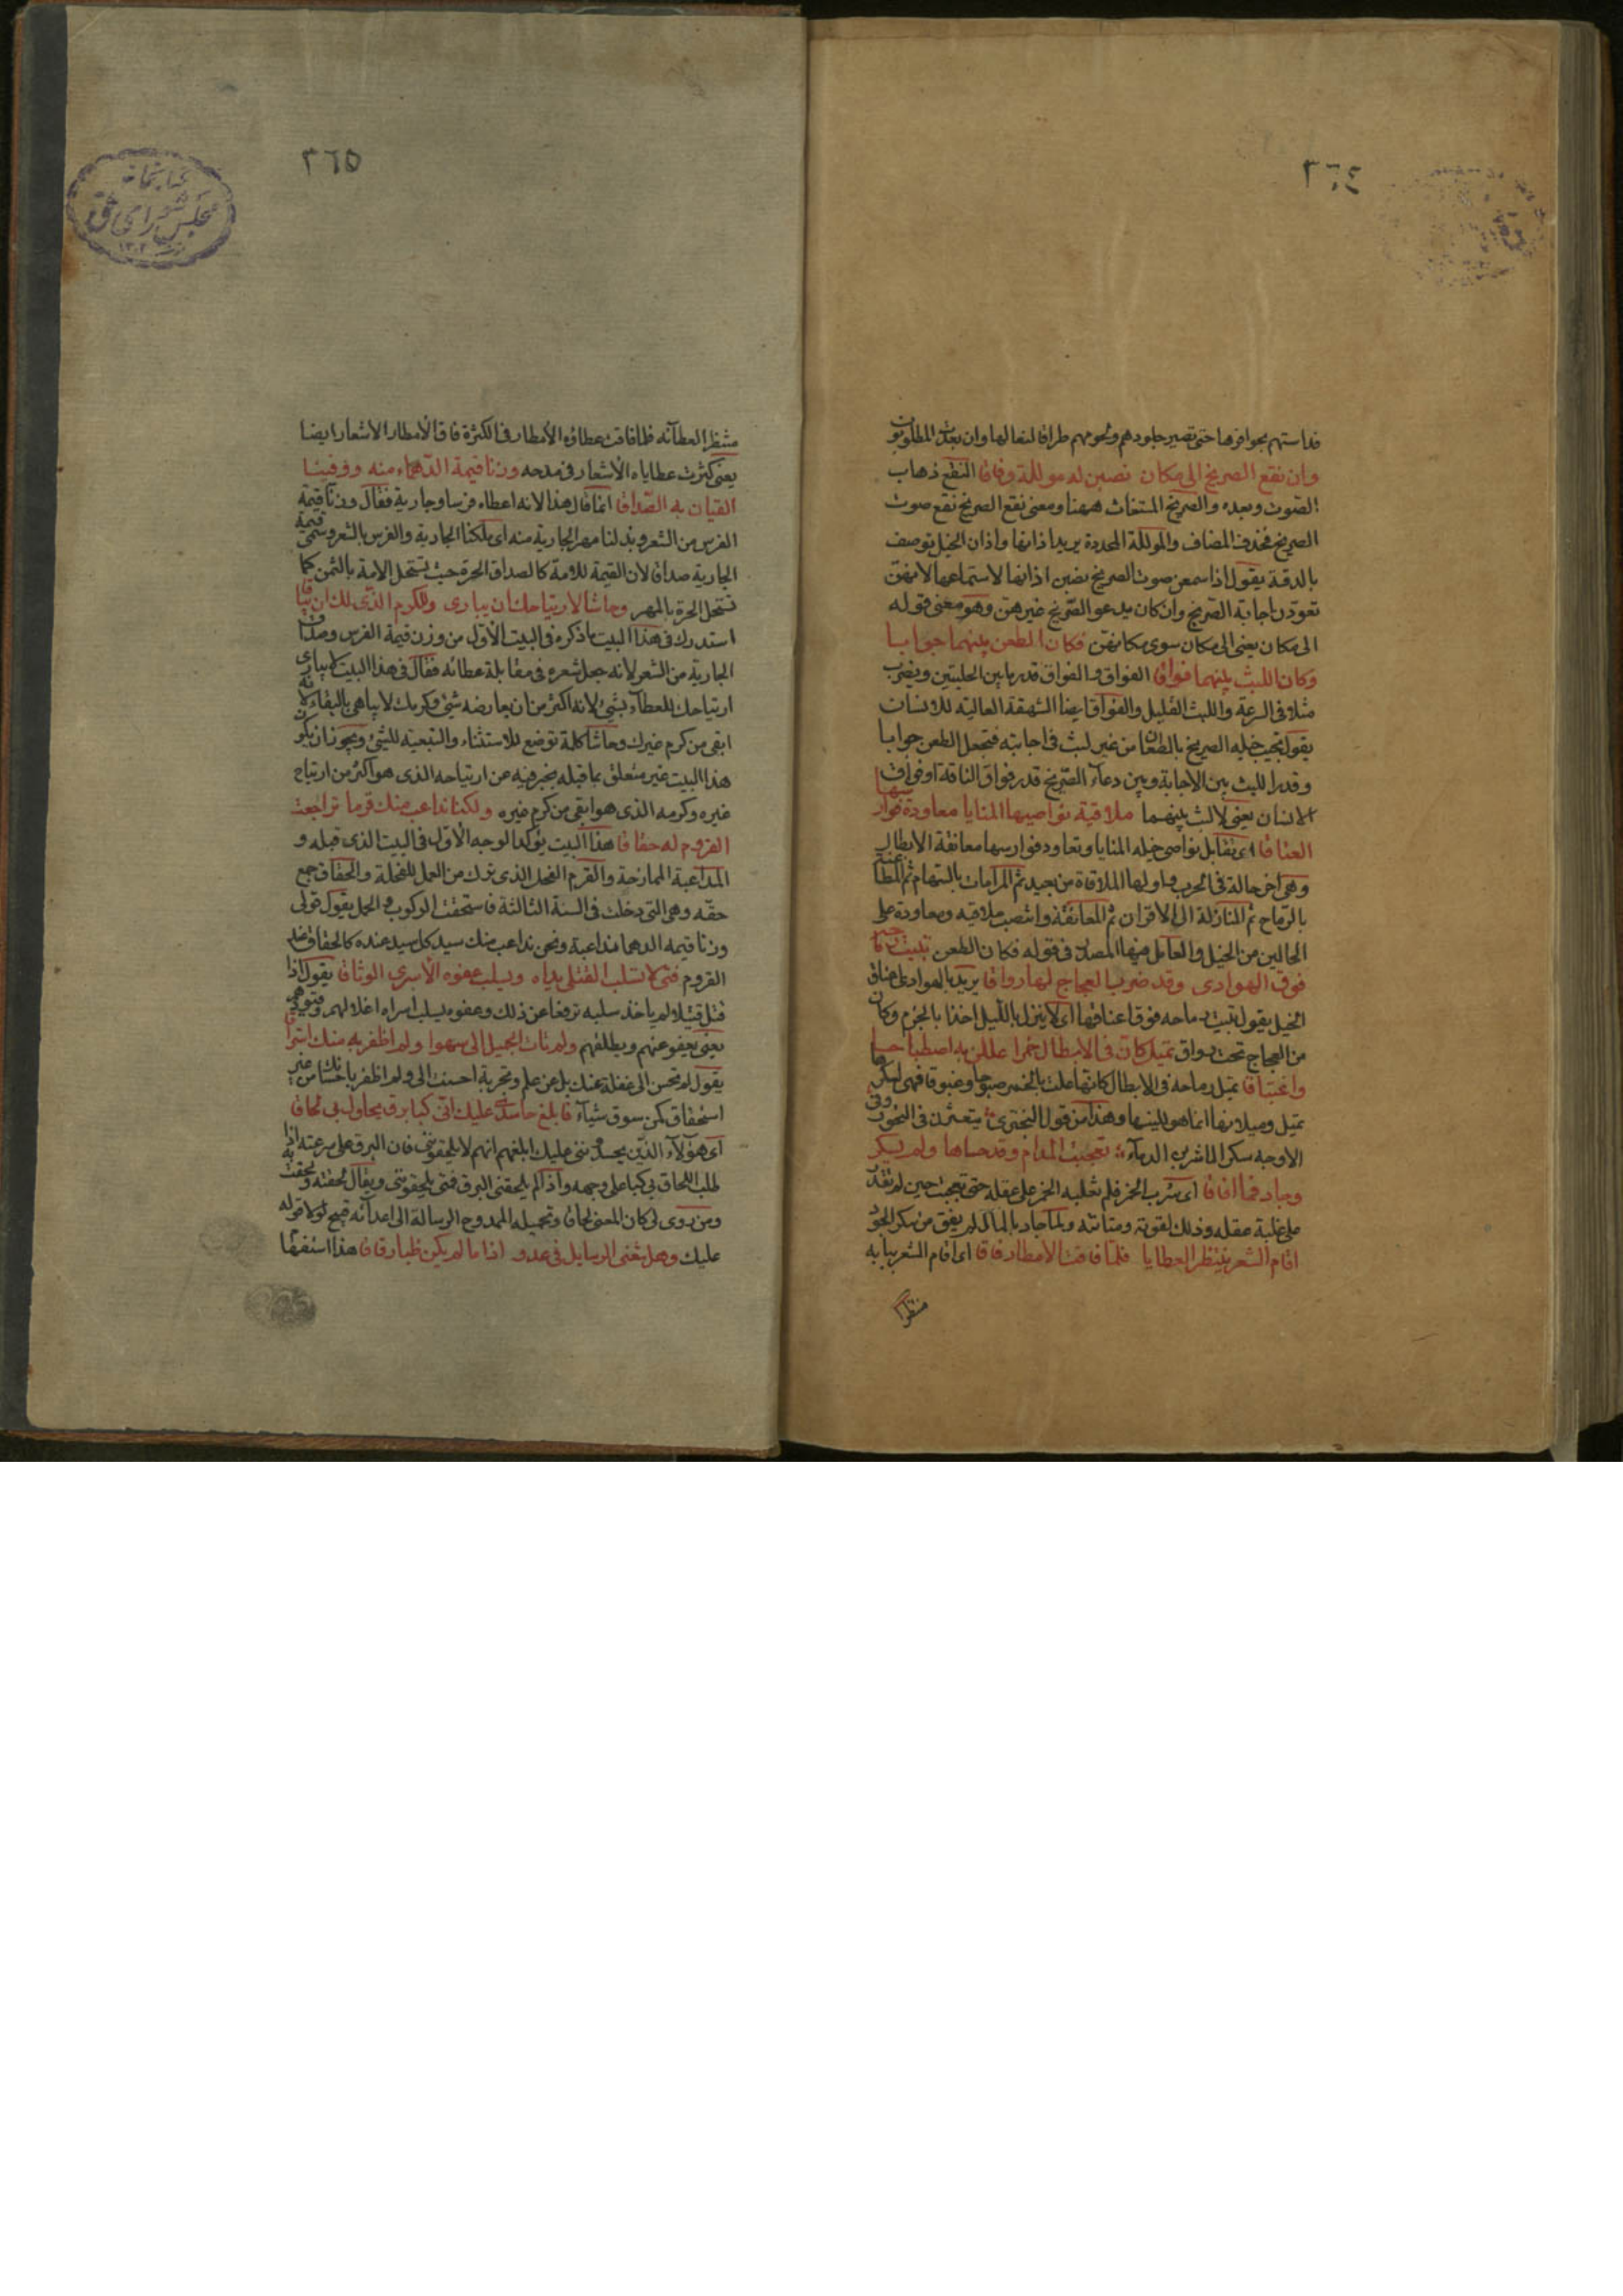 ٣٦٤
فداستهم بحوافرها حتى تصير جلودهم ولحومهم طراقا لنعالها وان بعدت المطلوبون
وان نقع الصريخ الى مكان نصبن له مؤللة دقاقا النقع ذهاب
الصوت وبعده والصريخ المستغاث ههنا ومعنى نقع الصريخ نقع صوت
الصريخ فحذف المضاف والمؤللة المحددة يريد اذانها واذان الخيل توصف
بالدقة يقول اذا سمعن صوت الصريخ نصبن اذانها لاستماعها لانهن
تعودن اجابة الصريخ وان كان يدعو الصريخ غيرهن وهو معنى قوله
الى مكان يعنى الى مكان سوى مكانهن فكان الطعن بينهما جوابا
وكان اللبث بينهما فواقا الفواق والفواق قدر ما بين الحلبتين ويضرب
مثلا فى السرعة واللبث القليل والفواق ايضا الشهقة العالية للانسان
يقول تجيب خيله الصريخ بالطعان من غير لبث فى اجابته فتجعل الطعن جوابا
وقدر اللبث بين الاجابة وبين دعاء الصريخ قدر فواق الناقة او فواق
الانسان يعنى لا لبث بينهما ملاقية نواصيها المنايا معاودة فوارسها
العناقا اى تقابل نواصى خيله المنايا وتعاود فوارسها معانقة الابطال
وهى اخر حالة فى الحرب واولها الملاقاة من بعيد ثم المراماة بالسهام ثم المطاعنة
بالرماح ثم المنازلة الى الاقران ثم المعانقة وانتصب ملاقيه ومعاودة على
الحالين من الخيل والعامل فيها المصدر فى قوله فكان الطعن تبيت رماحه
فوق الهوادى وقد ضرب العجاج لها رواقا يريد بالهوادى اعناق
الخيل يقول تبيت رماحه فوق اعناقها اى لا ينزل بالليل اخذا بالحزم وكان
من العجاج تحت رواق تميل كان فى الابطال خمرا عللن به اصطباحا
واغتباقا تميل رماحه فى الابطال كانها علت بالخمر صبوحا وغبوقا فهى لسكرها
تميل وميلانها انما هو للينها وهذا من قول البحترى يتعثرن فى النحور وفى
الاوجه سكرا لما شربن الدماء تعجبت المدام وقد حساها ولم يسكر
وجاد فما افاقا اى شرب الخمر فلم تغلبه الخمر على عقله حتى تعجبت حين لم تقدر
على غلبة عقله وذلك لقوته ومتانته ولما جاد بالمال لم يفق من سكر الجود
اقام الشعر ينتظر العطايا فلما فاقت الامطار فاقا اى اقام الشعر ببابه
منتظرا
٣٦٥
كتابخانه
مجلس شوراى ملى
منتظرا لعطائه فلما فاقت عطاؤه الامطار فى الكثرة فاق الامطار الاشعار ايضا
يعنى كثرت عطاياه الاشعار فى مدحه وزنا قيمة الدهماء منه ووفينا
القيان به الصداقا انما قال هذا لانه اعطاه فرسا وجارية فقال وزنا قيمة
الفرس من الشعر وبذلنا مهر الجارية منه اى ملكنا الجارية والفرس بالشعر وسمى قيمة
الجارية صداقا لان القيمة للامة كالصداق للحرة حيث يستحل الامة بالثمن كما
تستحل الحرة بالمهر وحاشا لارتياحك ان يبارى وللكرم الذى لك ان يباقا
استدرك فى هذا البيت ما ذكره فى البيت الاول من وزن قيمة الفرس وصداق
الجارية من الشعر لانه جعل شعره فى مقابلة عطائه فقال فى هذا البيت لا يبارى
ارتياحك للعطاء بشئ لانه اكثر من ان يعارضه شئ وكرمك لا يباهى بالبقاء لانه
ابقى من كرم غيرك وحاشا كلمة توضع للاستثناء والتبعيد للشئ ويجوز ان يكون
هذا البيت غير متعلق بما قبله يخبر فيه عن ارتياحه الذى هو اكثر من ارتياح
غيره وكرمه الذى هو ابقى من كرم غيره ولكنا نداعب منك قرما تراجعت
القروم له حقاقا هذا البيت يؤكد الوجه الاول فى البيت الذى قبله و
المداعبة الممازحة والقرم الفحل الذى يترك من العمل للفحلة والحقاق جمع
حقه وهى التى دخلت فى السنة الثالثة فاستحقت الركوب والحمل يقول قولى
وزنا قيمه الدهما مداعبة ونحن نداعب منك سيد كل سيد عنده كالحقاق عند
القروم فتى لا تسلب القتلى يداه ويسلب عفوه الاسرى الوثاقا يقول اذا
قتل قتيلا لم ياخذ سلبه ترفعا عن ذلك وعفوه يسلب اسراه اغلالهم وقيودهم
يعنى يعفو عنهم ويطلقهم ولم تات الجميل الى سهوا ولم اظفر به منك استراقا
يقول لم تحسن الى غفلة عنك بل عن علم وتجربة احسنت الى ولم اظفر باحسانك من غير
استحقاق كمن سرق شيئا فابلغ حاسدى عليك انى كبا برق يحاول بى لحاقا
اى هؤلاء الذين يحسدوننى عليك ابلغهم انهم لا يلحقوننى فان البرق على سرعته اذا
طلب اللحاق بى كبا على وجهه واذا لم يلحقنى البرق فمتى يلحقوننى ويقال لحقته ولحقت به
ومن روى لى كان المعنى لحاقا وتحميله الممدوح الرسالة الى اعدائه قبيح لولا قوله
عليك وهل تغنى الرسايل فى عدو اذا ما لم يكن ظبا رقاقا هذا استفها